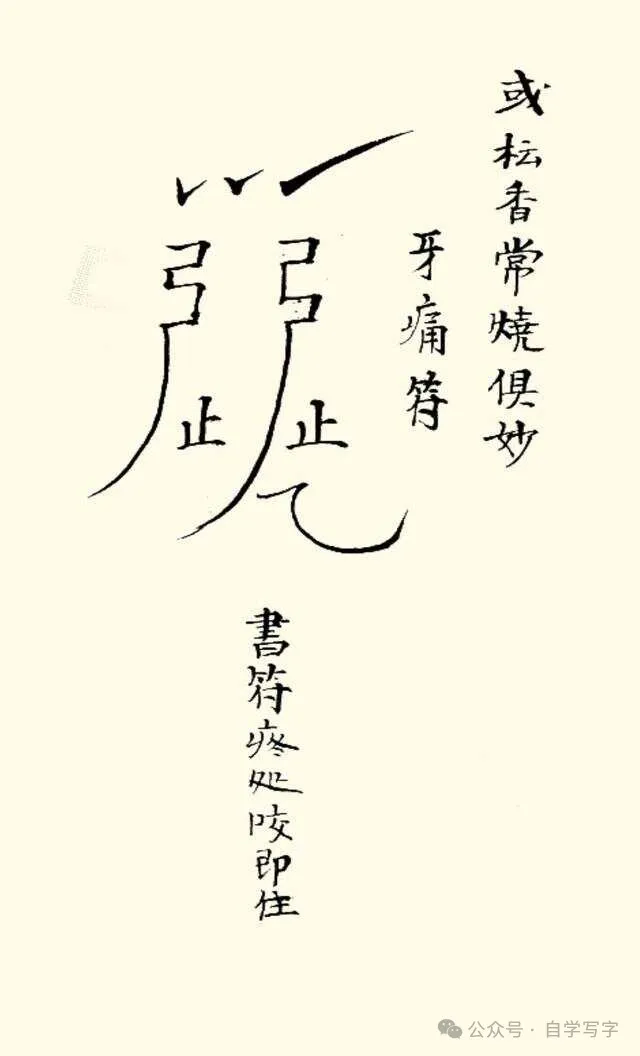 或枟香常燒俱妙
牙痛符
止
止
書符疼处咬即住
公众号 · 自学写字